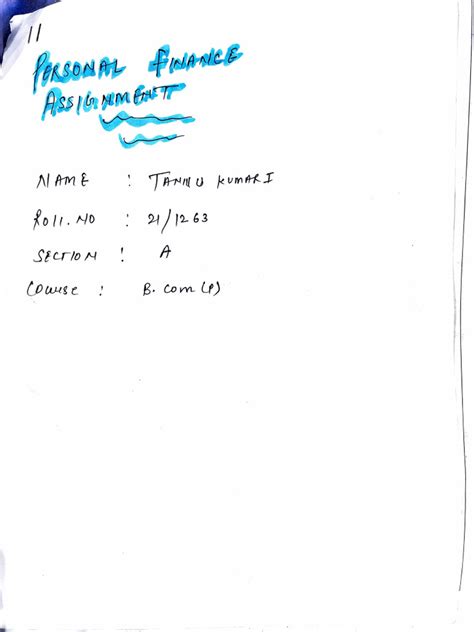 11
PERSONAL FINANCE
ASSIGNMENT
NAME : TANNU KUMARI
Roll. NO : 21/1263
SECTION : A
COURSE : B. Com (P)